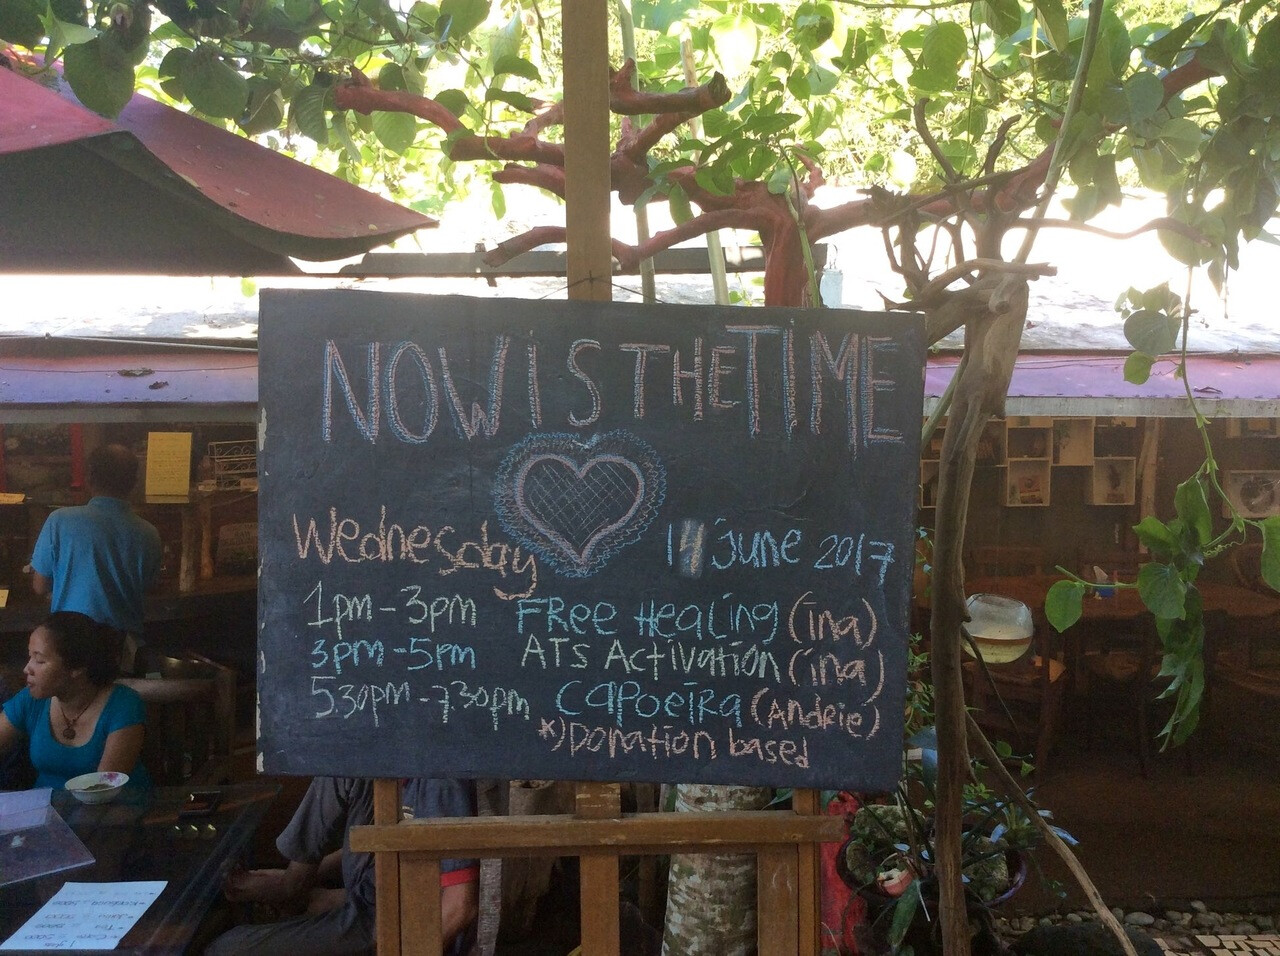 NOW iS THE TiME
Wednesday 14 june 2017
1pm-3pm FRee Healing (ina)
3pm-5pm ATs Activation (ina)
5.30pm-7.30pm Capoeira (Andrie)
*) Donation based